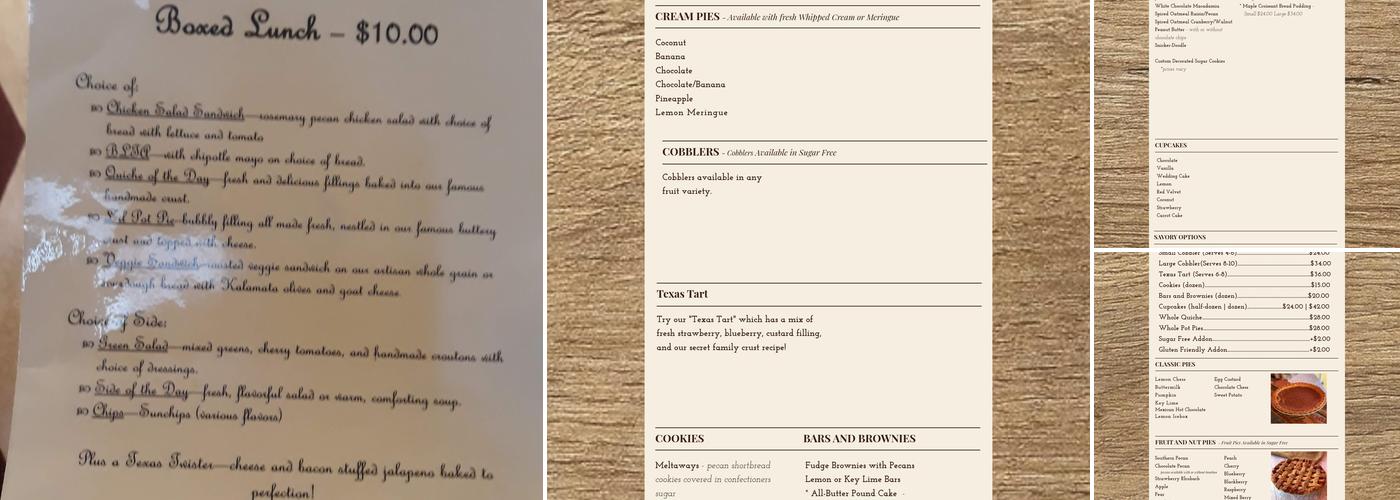 Boxed Lunch – $10.00
Choice of:
Chicken Salad Sandwich—rosemary pecan chicken salad with choice of
bread with lettuce and tomato
BLTA—with chipotle mayo on choice of bread.
Quiche of the Day—fresh and delicious fillings baked into our famous
handmade crust.
Lil Pot Pie—bubbly filling all made fresh, nestled in our famous buttery
crust and topped with cheese.
Veggie Sandwich—roasted veggie sandwich on our artisan whole grain or
sourdough bread with Kalamata olives and goat cheese.
Choice of Side:
Green Salad—mixed greens, cherry tomatoes, and handmade croutons with
choice of dressings.
Side of the Day—fresh, flavorful salad or warm, comforting soup.
Chips—Sunchips (various flavors)
Plus a Texas Twister—cheese and bacon stuffed jalapeno baked to
perfection!
CREAM PIES - Available with fresh Whipped Cream or Meringue
Coconut
Banana
Chocolate
Chocolate/Banana
Pineapple
Lemon Meringue
COBBLERS - Cobblers Available in Sugar Free
Cobblers available in any
fruit variety.
Texas Tart
Try our "Texas Tart" which has a mix of
fresh strawberry, blueberry, custard filling,
and our secret family crust recipe!
COOKIES
Meltaways - pecan shortbread
cookies covered in confectioners
sugar
BARS AND BROWNIES
Fudge Brownies with Pecans
Lemon or Key Lime Bars
* All-Butter Pound Cake -
White Chocolate Macadamia
Spiced Oatmeal Raisin/Pecan
Spiced Oatmeal Cranberry/Walnut
Peanut Butter - with or without
chocolate chips
Snicker-Doodle
Custom Decorated Sugar Cookies
*prices vary
* Maple Croissant Bread Pudding -
Small $24.00 Large $34.00
CUPCAKES
Chocolate
Vanilla
Wedding Cake
Lemon
Red Velvet
Coconut
Strawberry
Carrot Cake
SAVORY OPTIONS
Small Cobbler (Serves 4-6) $24.00
Large Cobbler(Serves 8-10) $34.00
Texas Tart (Serves 6-8) $36.00
Cookies (dozen) $15.00
Bars and Brownies (dozen) $20.00
Cupcakes (half-dozen | dozen) $24.00 | $42.00
Whole Quiche $28.00
Whole Pot Pies $28.00
Sugar Free Addon +$2.00
Gluten Friendly Addon +$2.00
CLASSIC PIES
Lemon Chess
Buttermilk
Pumpkin
Key Lime
Mexican Hot Chocolate
Lemon Icebox
Egg Custard
Chocolate Chess
Sweet Potato
FRUIT AND NUT PIES - Fruit Pies Available in Sugar Free
Southern Pecan
Chocolate Pecan
pecans available with or without bourbon
Strawberry Rhubarb
Apple
Pear
Peach
Cherry
Blueberry
Blackberry
Raspberry
Mixed Berry